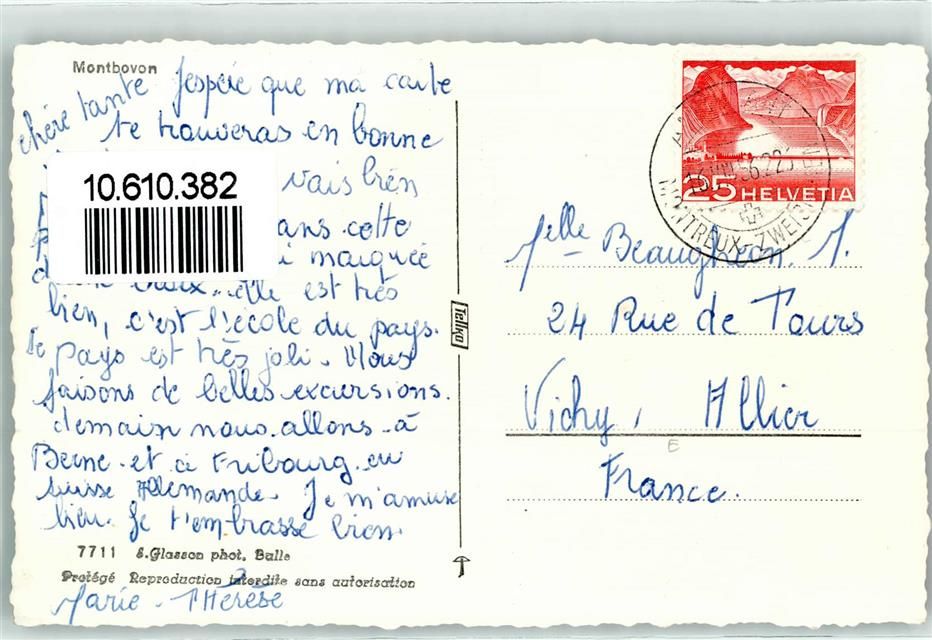 Montbovon
chère tante J'espère que ma carte
te trouveras en bonne
vais bien
10.610.382
ans cette
i marquée
croix. elle est très
bien, c'est l'école du pays.
Le pays est très joli. Nous
faisons de belles excursions.
demain nous allons à
Berne et à Fribourg en
suisse Allemande. Je m'amuse
bien. Je t'embrasse bien
7711 S.Glasson phot, Bulle
Protégé Reproduction interdite sans autorisation
Marie-Thérèse
Tellko
25 HELVETIA
MONTREUX-ZWEISIMMEN
Melle Beaugheon. J.
24 Rue de Tours
Vichy, Allier
France.